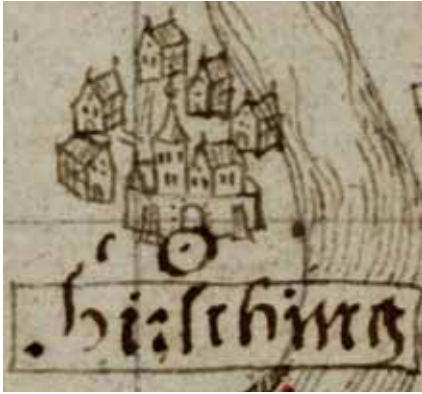 . hirsching